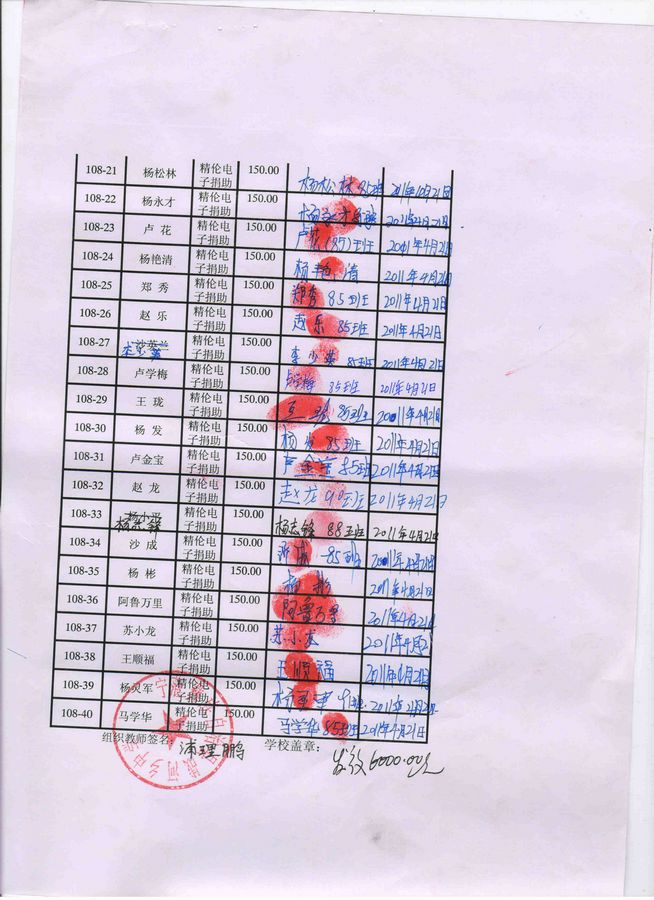 108-21 杨松林 精伦电子捐助 150.00 杨松林 85班 2011年10月21日
108-22 杨永才 精伦电子捐助 150.00 杨永才 2011年4月21日
108-23 卢 花 精伦电子捐助 150.00 卢花(85)班 2011年4月21日
108-24 杨艳清 精伦电子捐助 150.00 杨艳清 2011年4月21日
108-25 郑 秀 精伦电子捐助 150.00 郑秀 85班 2011年4月21日
108-26 赵 乐 精伦电子捐助 150.00 赵乐 85班 2011年4月21日
108-27 沙英兰 李少英 精伦电子捐助 150.00 李少英 85班 2011年4月21日
108-28 卢学梅 精伦电子捐助 150.00 卢学梅 85班 2011年4月21日
108-29 王 珑 精伦电子捐助 150.00 王珑 85班 2011年4月21日
108-30 杨 发 精伦电子捐助 150.00 杨发 85班 2011年4月21日
108-31 卢金宝 精伦电子捐助 150.00 卢金宝 85班 2011年4月21日
108-32 赵 龙 精伦电子捐助 150.00 赵龙 90班 2011年4月21日
108-33 杨小平 杨志锋 精伦电子捐助 150.00 杨志锋 88班 2011年4月21日
108-34 沙 成 精伦电子捐助 150.00 沙成 85班 2011年4月21日
108-35 杨 彬 精伦电子捐助 150.00 杨彬 2011年4月21日
108-36 阿鲁万里 精伦电子捐助 150.00 阿鲁万里 2011年4月21日
108-37 苏小龙 精伦电子捐助 150.00 苏小龙 2011年4月2
108-38 王顺福 精伦电子捐助 150.00 王顺福 2011年4月21日
108-39 杨灵军 精伦电子捐助 150.00 91班 2011年4月21日
108-40 马学华 精伦电子捐助 150.00 马学华 85班 2011年4月21日
组织教师签名: 沛理鹏 学校盖章:
发放6000.00元